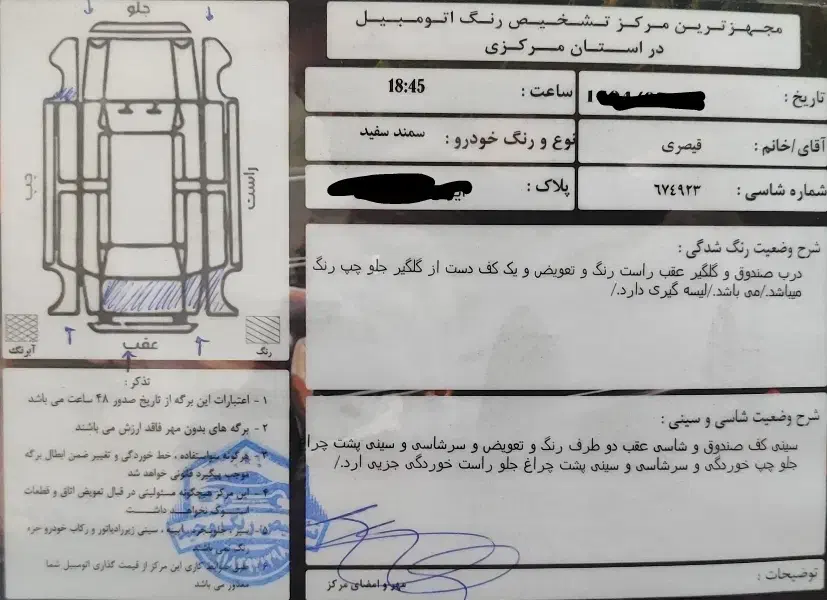 مجهزترین مرکز تشخیص رنگ اتومبیل
در استان مرکزی
تاریخ :
ساعت : 18:45
آقای/خانم : قیصری
نوع و رنگ خودرو : سمند سفید
شماره شاسی : ٦٧٤٩٢٣
پلاک :
شرح وضعیت رنگ شدگی :
درب صندوق و گلگیر عقب راست رنگ و تعویض و یک کف دست از گلگیر جلو چپ رنگ
میباشد./می باشد./لیسه گیری دارد./
شرح وضعیت شاسی و سینی :
سینی کف صندوق و شاسی عقب دو طرف رنگ و تعویض و سرشاسی و سینی پشت چراغ
جلو چپ خوردگی و سرشاسی و سینی پشت چراغ جلو راست خوردگی جزیی ارد./
توضیحات :
مهر و امضای مرکز
جلو
چپ
راست
عقب
آبرنگ
رنگ
تذکر :
۱ - اعتبارات این برگه از تاریخ صدور ۴۸ ساعت می باشد
۲ - برگه های بدون مهر فاقد ارزش می باشند
۳ - هرگونه سواستفاده ، خط خوردگی و تغییر ضمن ابطال برگه
موجب پیگیرد قانونی خواهد شد
۴ - این مرکز هیچگونه مسئولیتی در قبال تعویض اتاق و قطعات
نخواهد داشت
سینی زیررادیاتور و رکاب خودرو جزء
رنگ نمی باشند
کاری این مرکز از قیمت گذاری اتومبیل شما
معذور می باشد